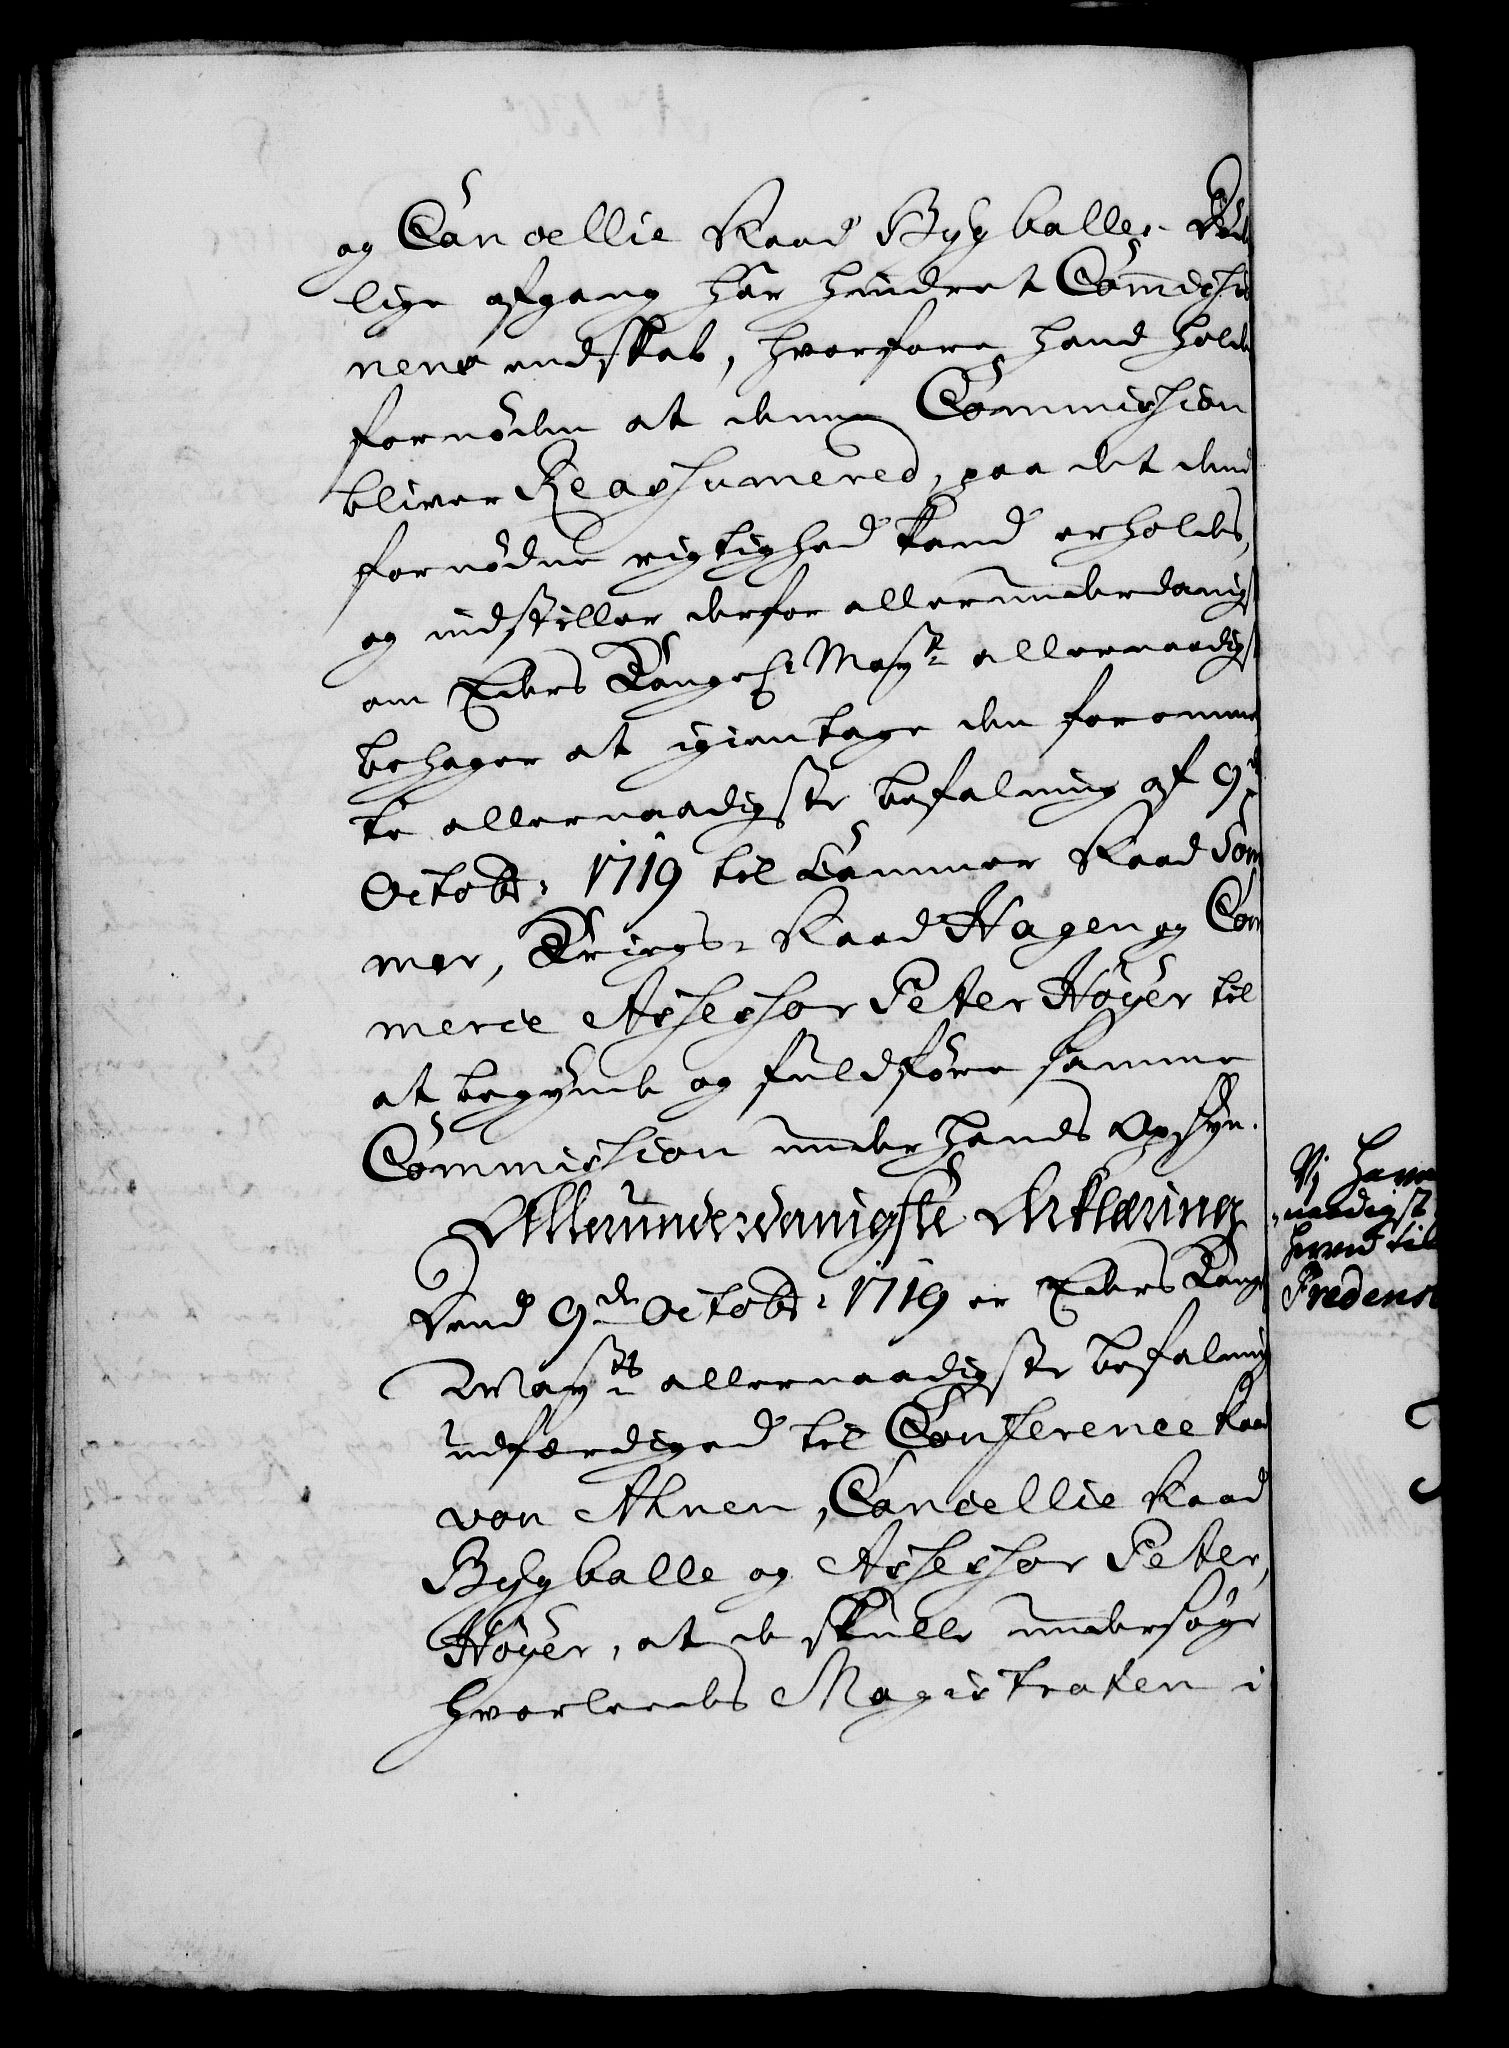 og Cancellie Raad Bygballes Död
lige afgang har hindret Com̄ishio
nens endskab, hvorfore hand holder
fornöden at denne Commishion
bliver Reashumered, paa det dend
fornödne rigtighed kand erholdes,
og indstiller derfor allerunderdanigst
om Eders Kongel: Mayt: allernaadigst
behager at igientage den forommel
te allernaadigste befalning af 9de
Octobr: 1719 til Cammer Raad Som
mer, Krigs-Raad Hagen og Com
merce Asheshor Peter Höyer til
at begynde og fuldföre samme
Commishion under hands Opsyn.
Allerunderdanigste Erklæring
Dend 9de Octobr: 1719 er Eders Kongl
Mayts allernaadigste befalning
udfærdiged til Conference Raad
von Ahnen, Cancellie Raad
Bygballe og Asheshor Peter
Höyer, at de skulle undersöge
hvorledes Magistraten i
Vj have
naadigst
herved til
Fredens